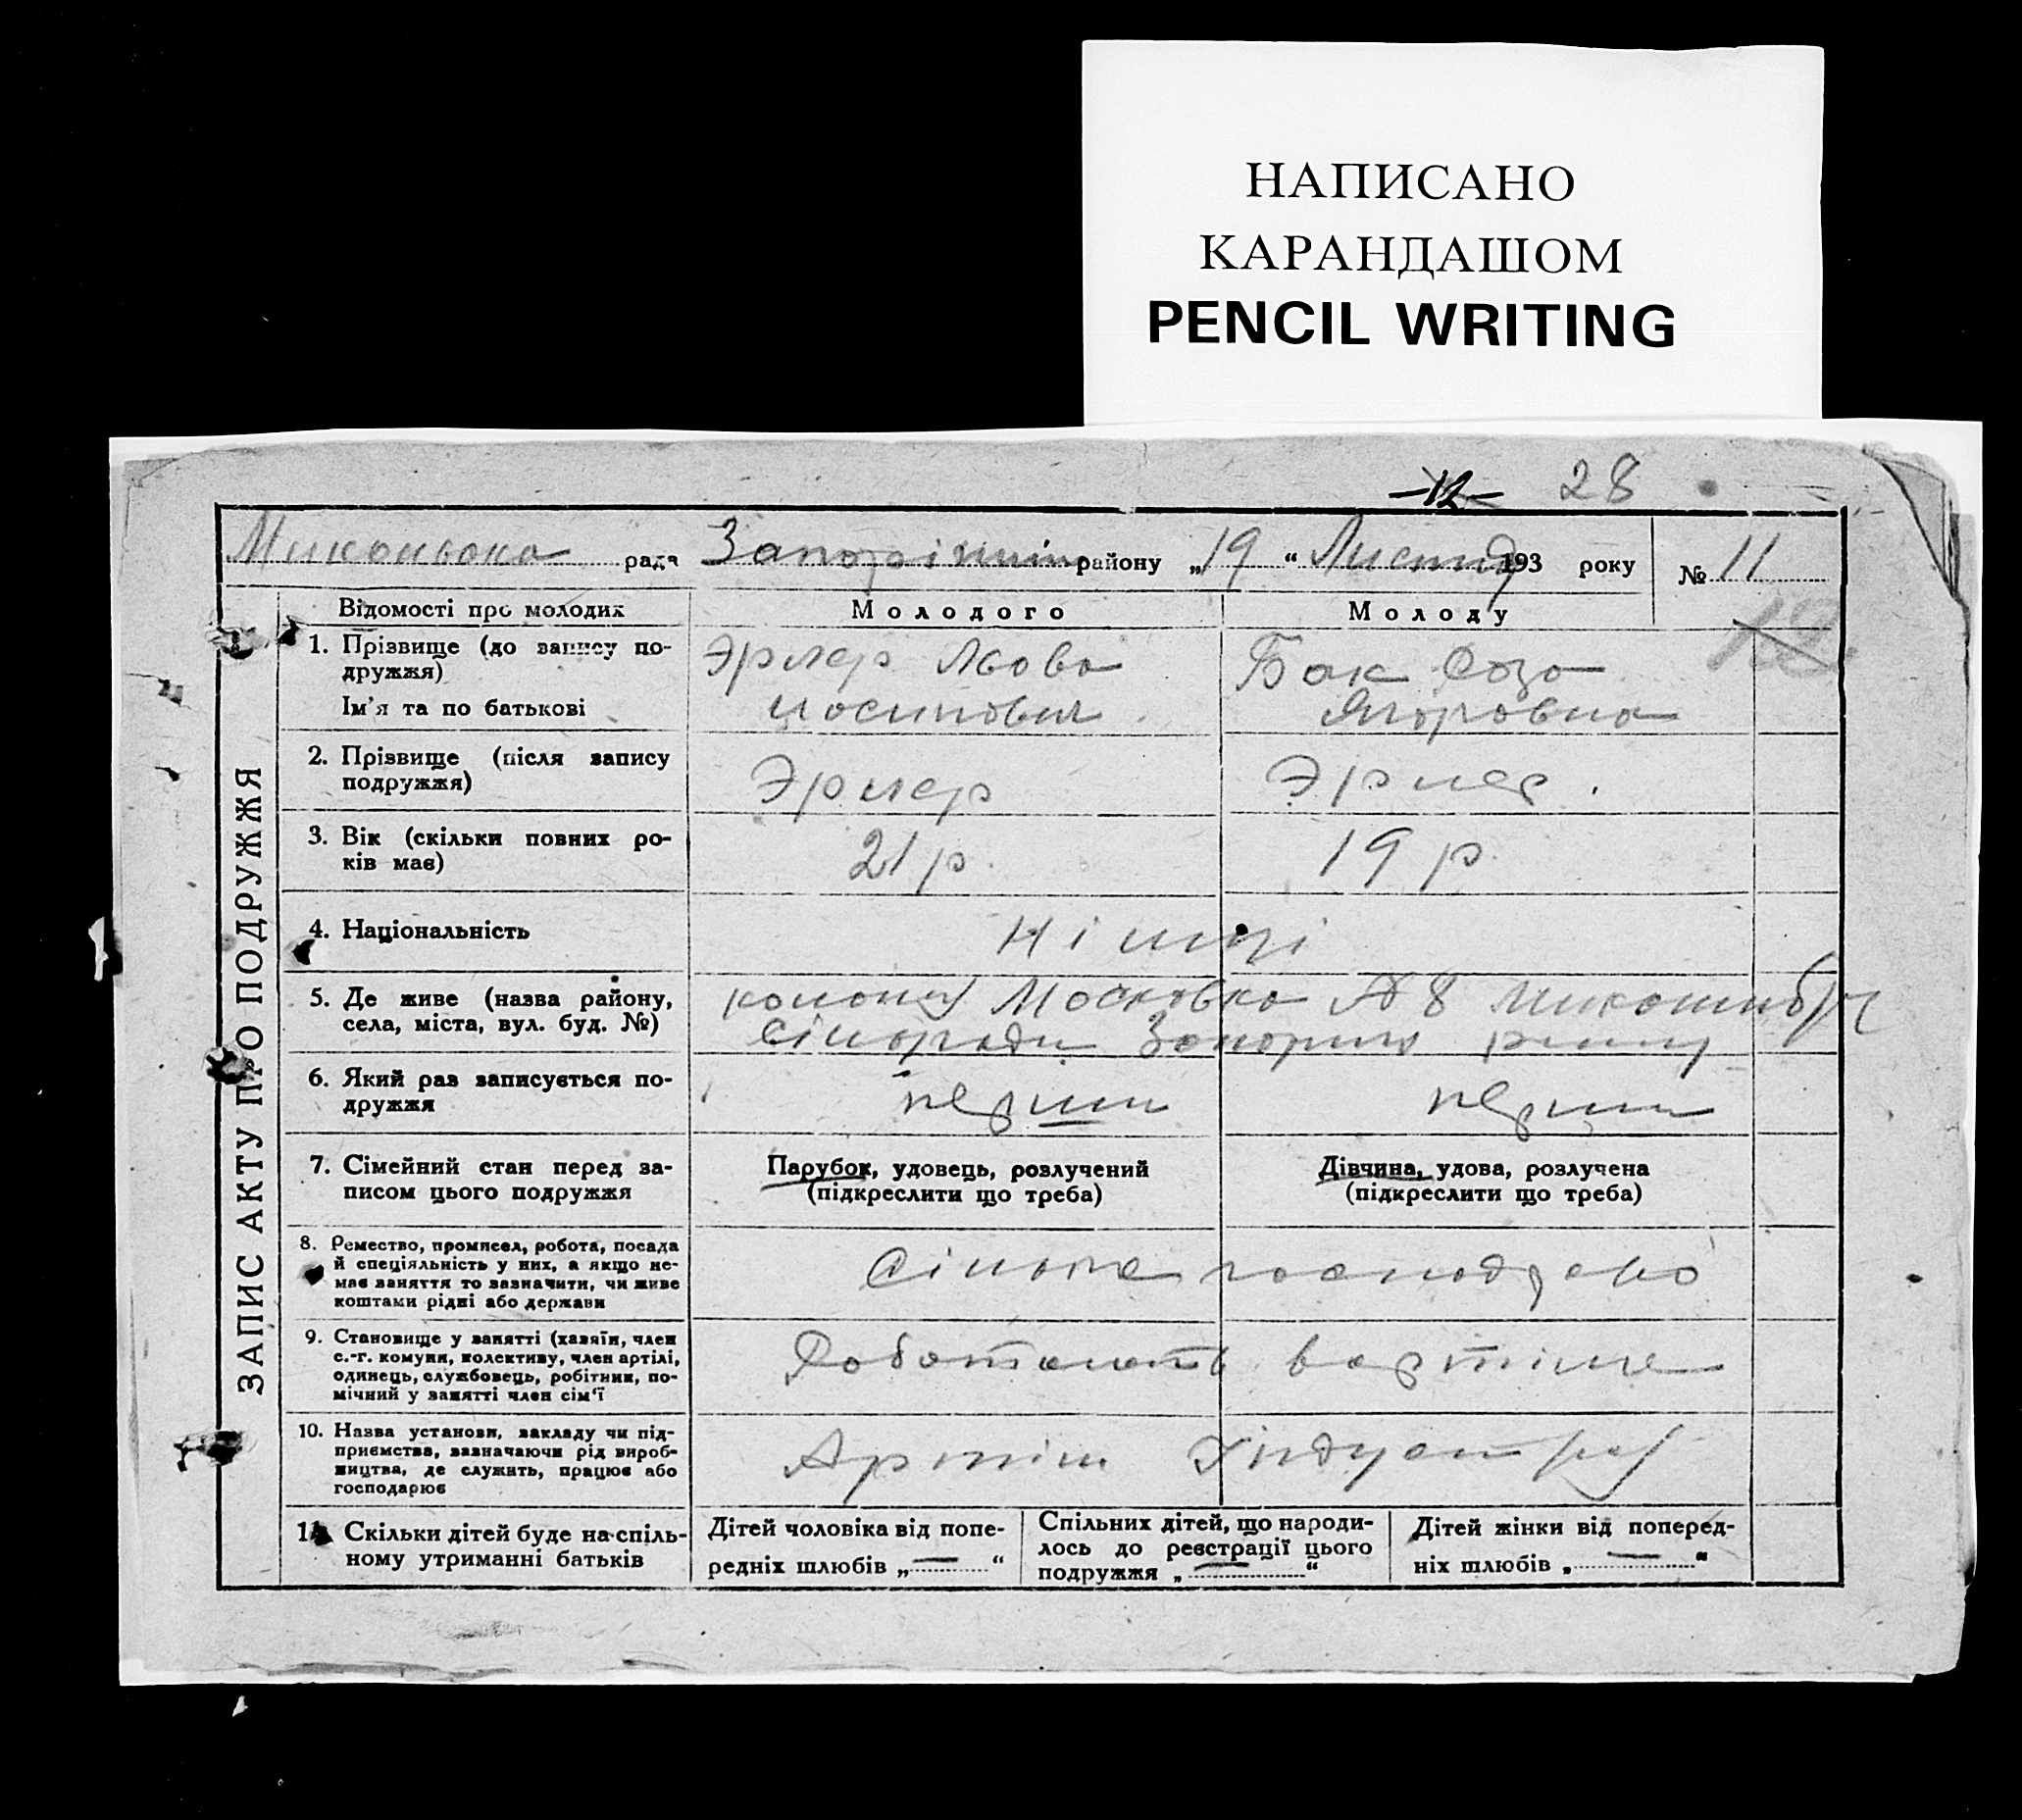 НАПИСАНО
КАРАНДАШОМ
PENCIL WRITING
12 28
рада району „19“ Листопад 193 року № 11
12
ЗАПИС АКТУ ПРО ПОДРУЖЖЯ
Відомості про молодих Молодого Молоду
1. Прізвище (до запису по-
дружжя)
Ім'я та по батькові
Эрлер
Йосипович
Бак Роза
2. Прізвище (після запису
подружжя)
Эрлер Эрлер.
3. Вік (скільки повних ро-
ків має)
21 р. 19 р.
4. Національність
Німці
5. Де живе (назва району,
села, міста, вул. буд. №)
Московка № 8
сільради
6. Який раз записується по-
дружжя
перший перший
7. Сімейний стан перед за-
писом цього подружжя
Парубок, удовець, розлучений
(підкреслити що треба)
Дівчина, удова, розлучена
(підкреслити що треба)
8. Ремество, промисел, робота, посада
й спеціяльність у них, а якщо не-
має заняття то зазначити, чи живе
коштами рідні або держави
Сільське господарство
9. Становище у занятті (хазяїн, член
с.-г. комуни, колективу, член артілі,
одинець, службовець, робітник, по-
мічний у занятті член сім'ї
Роботають в артіле
10. Назва установи, закладу чи під-
приємства, зазначаючи рід вироб-
ництва, де служить, працює або
господарює
Артіль
11. Скільки дітей буде на спіль-
ному утриманні батьків
Дітей чоловіка від попе-
редніх шлюбів „—“
Спільних дітей, що народи-
лось до реєстрації цього
подружжя „—“
Дітей жінки від поперед-
ніх шлюбів „—“